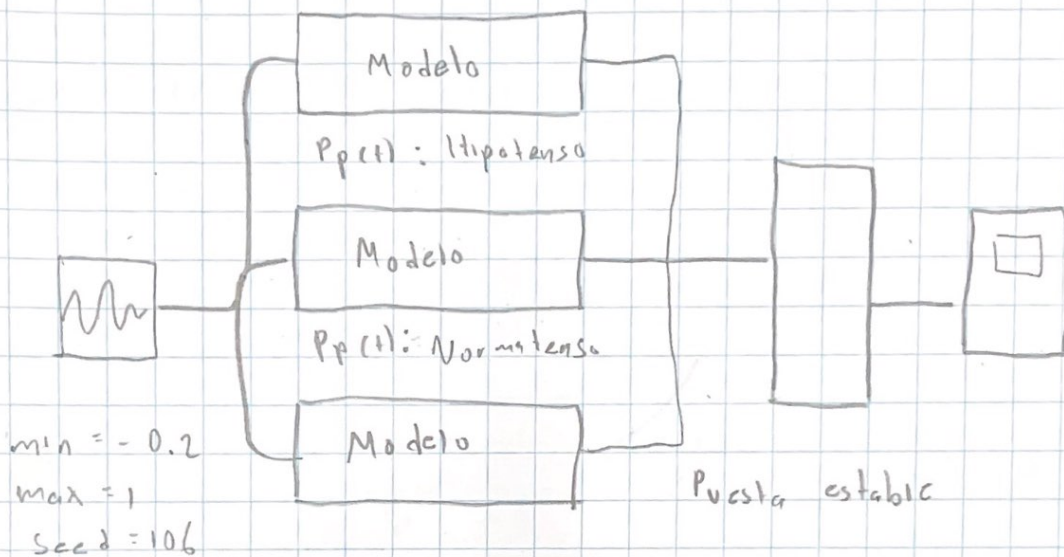 Modelo
Pp(t): Hipotenso
Modelo
Pp(t): Normotenso
Modelo
min = - 0.2
max = 1
seed = 106
Puesta estable